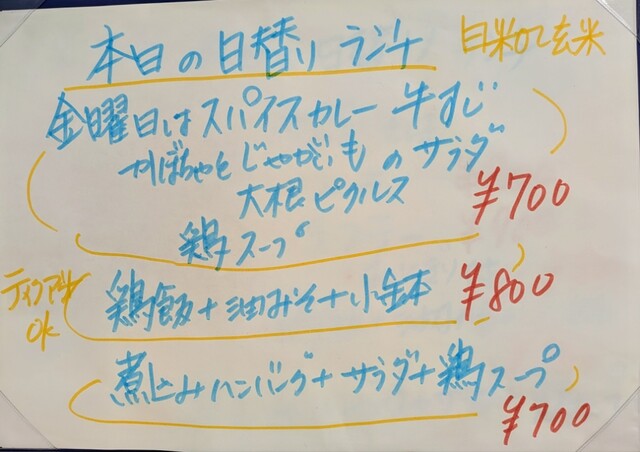 本日の日替り ランチ
白米or玄米
金曜日はスパイスカレー 牛すじ
かぼちゃとじゃがいものサラダ
大根ピクルス
¥700
鶏スープ
鶏飯+油みそ+小鉢 ¥800
OK
煮込みハンバーグ+サラダ+鶏スープ
¥700